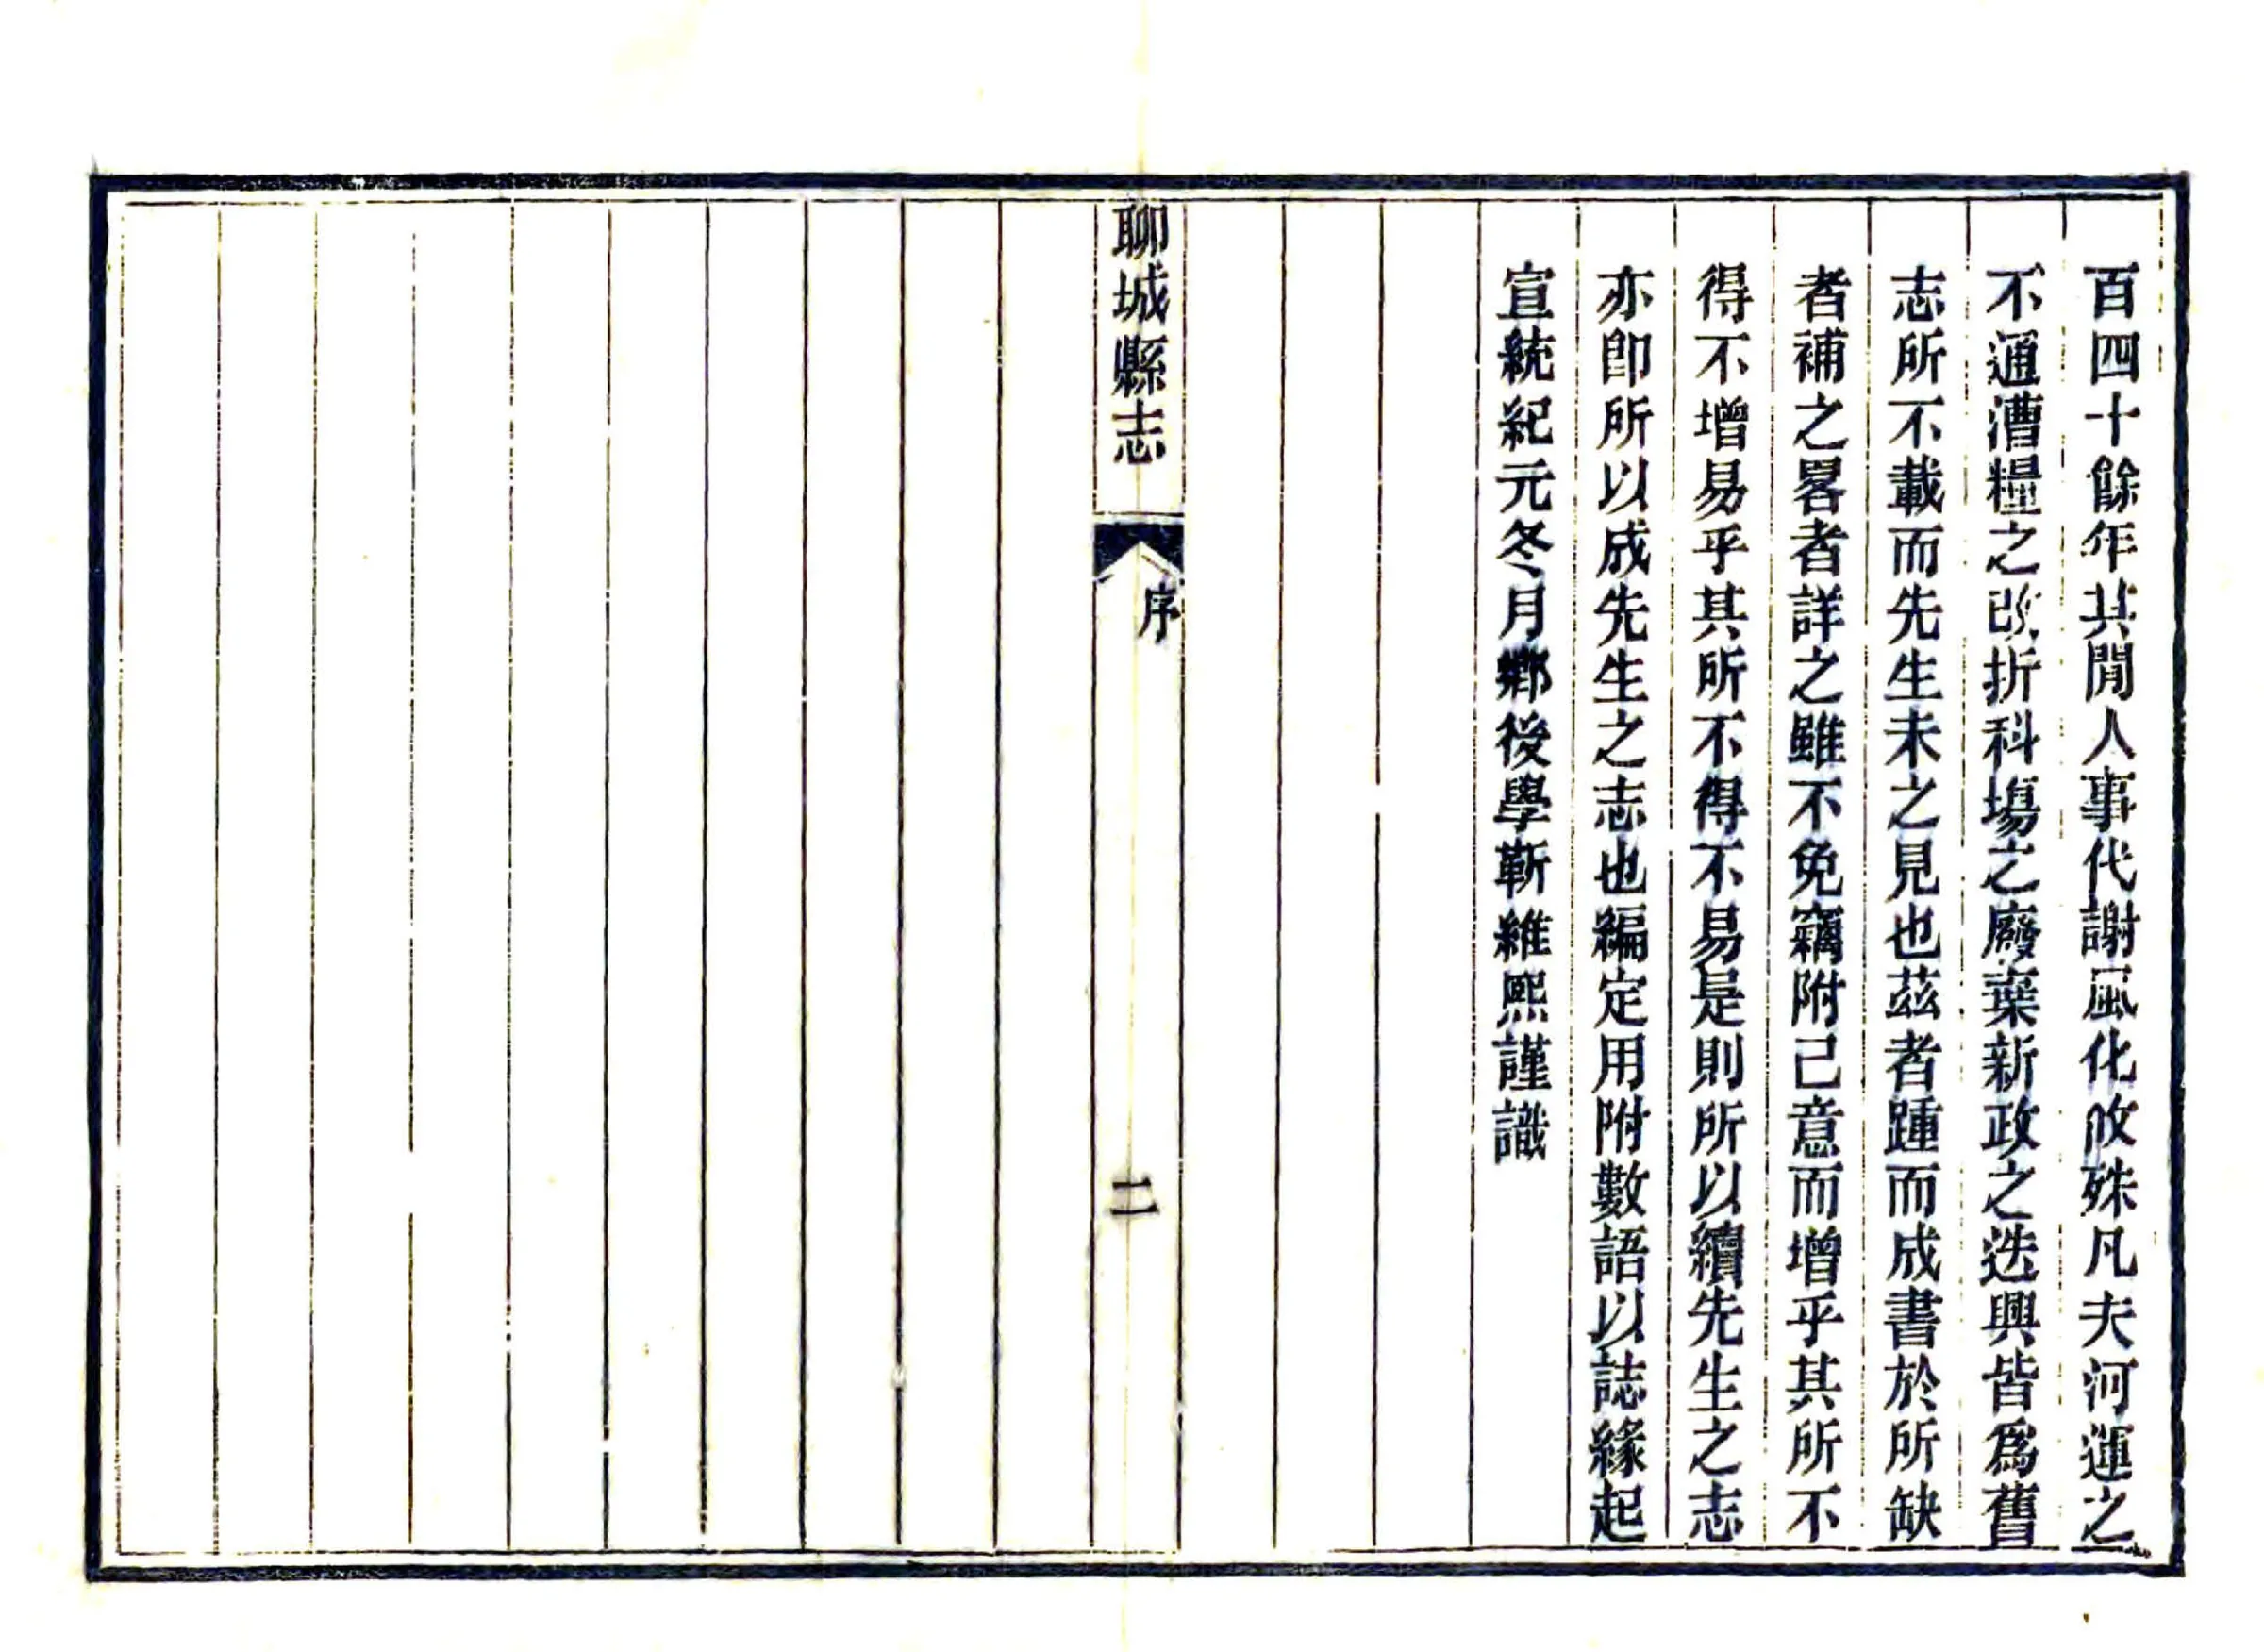 百四十餘年其閒人事代謝風化攸殊凡夫河運之
不通漕糧之改折科場之廢棄新政之迭興皆爲舊
志所不載而先生未之見也茲者踵而成書於所缺
者補之畧者詳之雖不免竊附己意而增乎其所不
得不增易乎其所不得不易是則所以續先生之志
亦卽所以成先生之志也編定用附數語以誌緣起
宣統紀元冬月鄉後學靳維熙謹識
聊城縣志
序
二